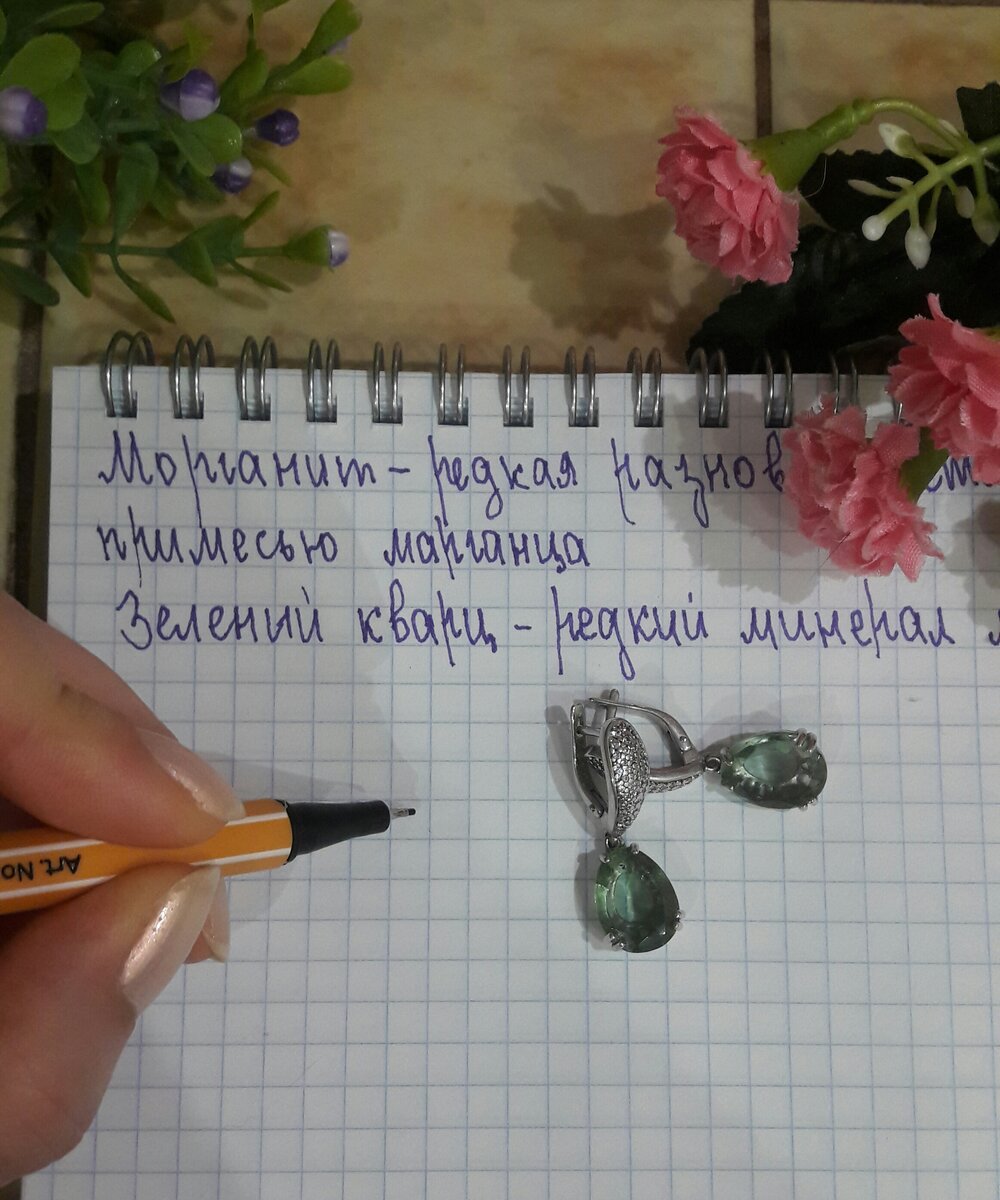 Морганит – редкая
примесью марганца
Зелений кварц – редкий минерал
Art. No